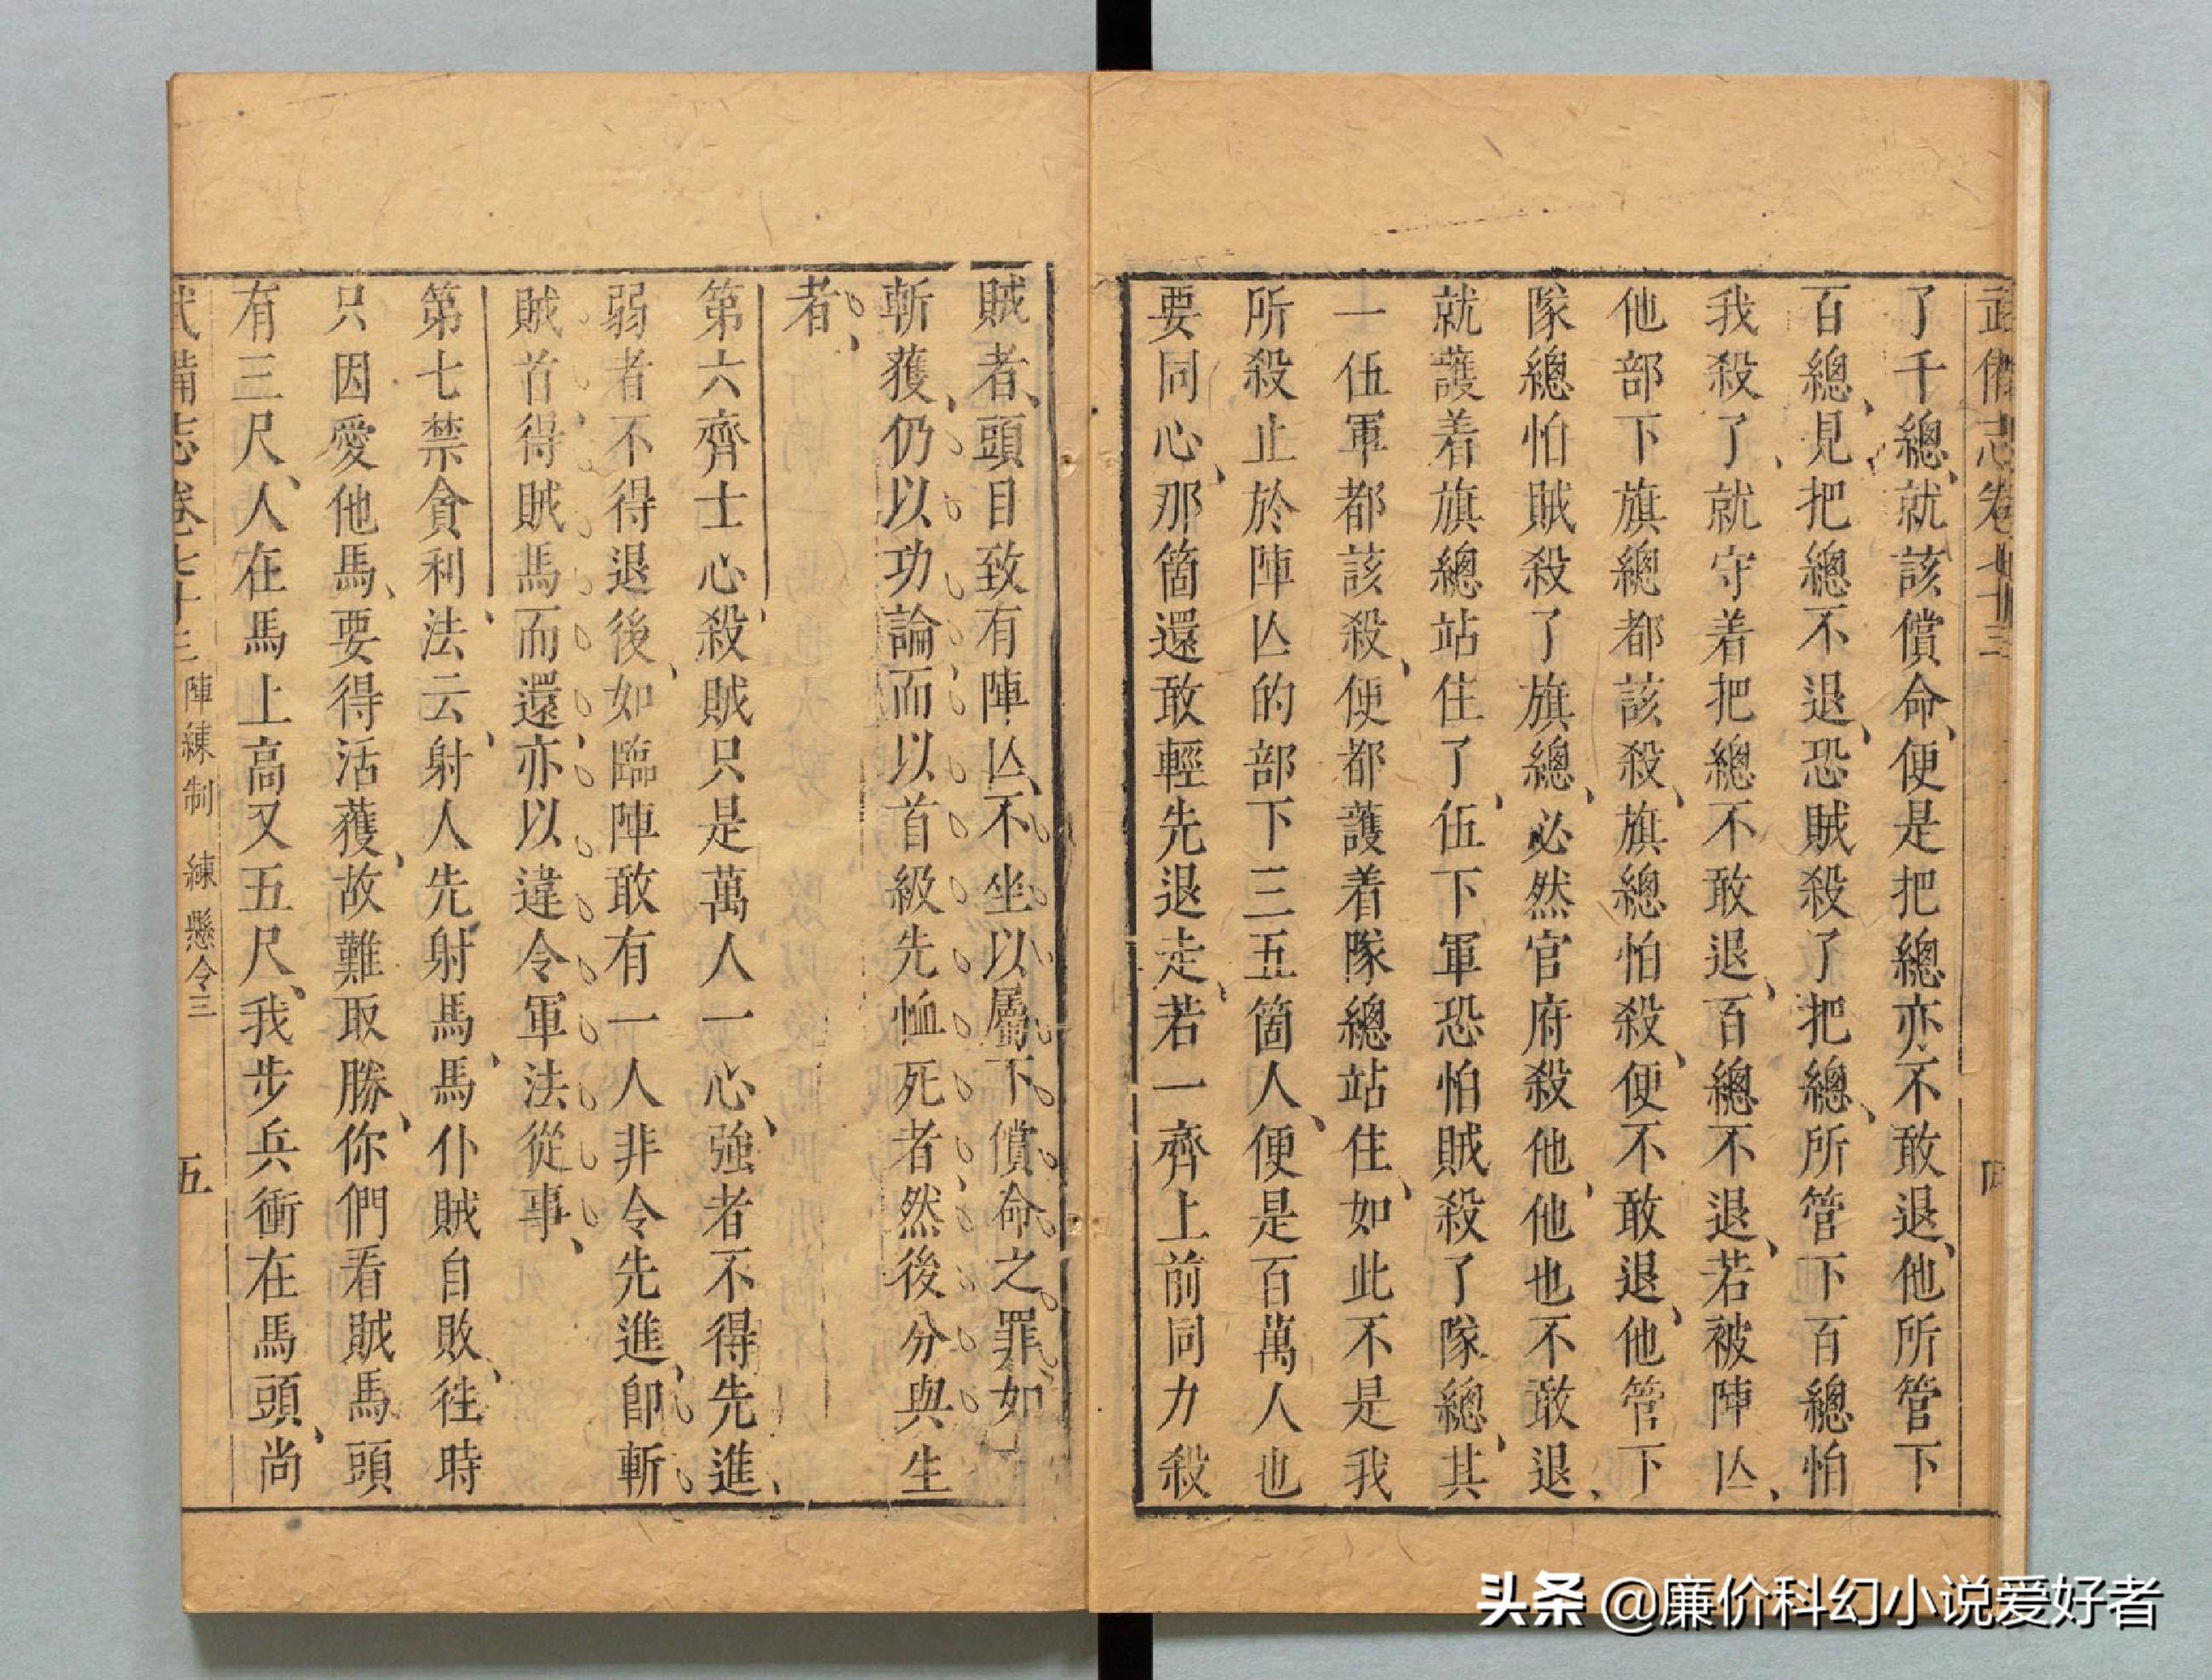 武備志卷七十三 四
了千總就該償命便是把總亦不敢退他所管下
百總見把總不退恐賊殺了把總所管下百總怕
我殺了就守着把總不敢退百總不退若被陣亾
他部下旗總都該殺旗總怕殺便不敢退他管下
隊總怕賊殺了旗總必然官府殺他他也不敢退
就護着旗總站住了伍下軍恐怕賊殺了隊總其
一伍軍都該殺便都護着隊總站住如此不是我
所殺止於陣亾的部下三五箇人便是百萬人也
要同心那箇還敢輕先退走若一齊上前同力殺
賊者頭目致有陣亾不坐以屬下償命之罪如
斬獲仍以功論而以首級先恤死者然後分與生
者
第六齊士心殺賊只是萬人一心強者不得先進
弱者不得退後如臨陣敢有一人非令先進卽斬
賊首得賊馬而還亦以違令軍法從事
第七禁貪利法云射人先射馬馬仆賊自敗徃時
只因愛他馬要得活獲故難取勝你們看賊馬頭
有三尺人在馬上高又五尺我步兵衝在馬頭尚
武備志卷七十三 陣練制 練 懸令三 五
头条 @廉价科幻小说爱好者